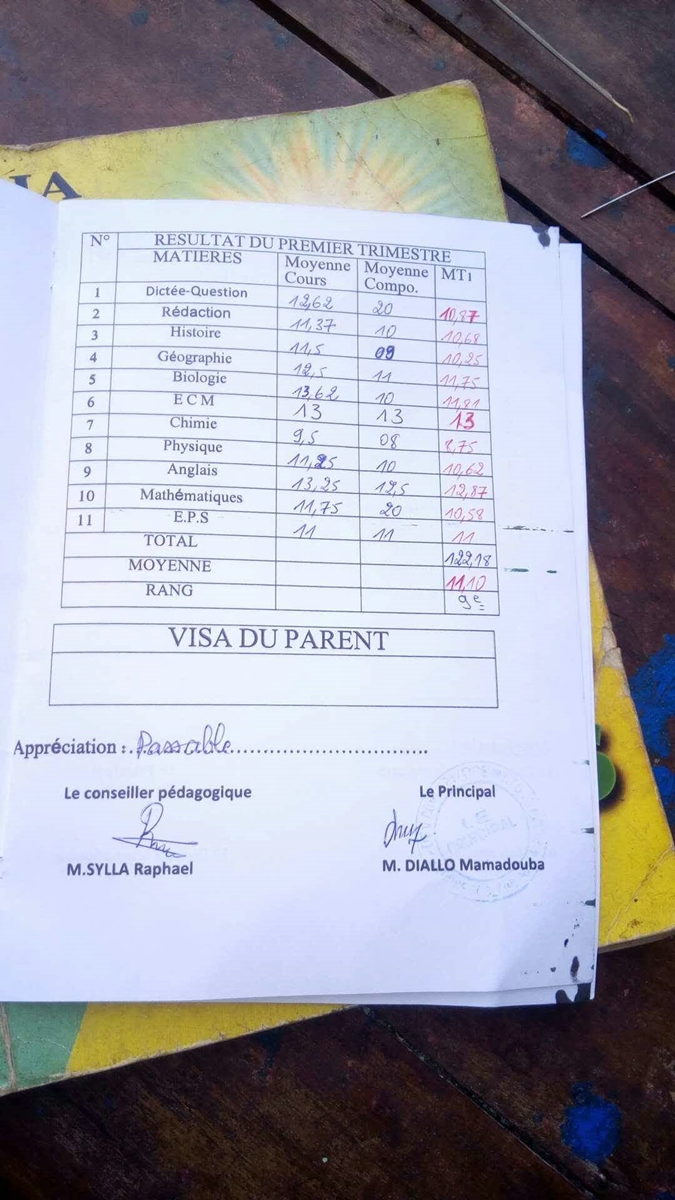 IA
N° RESULTAT DU PREMIER TRIMESTRE
MATIERES Moyenne Cours Moyenne Compo. MT1
1 Dictée-Question 12,62 20 10,87
2 Rédaction 11,37 10 10,68
3 Histoire 11,5 09 10,25
4 Géographie 12,5 11 11,75
5 Biologie 13,62 10 11,81
6 E C M 13 13 13
7 Chimie 9,5 08 8,75
8 Physique 11,25 10 10,62
9 Anglais 13,25 12,5 12,87
10 Mathématiques 11,75 20 10,58
11 E.P.S 11 11 11
TOTAL 122,18
MOYENNE 11,10
RANG 9e
VISA DU PARENT
Appréciation : Passable
Le conseiller pédagogique Le Principal
LE PRINCIPAL
M.SYLLA Raphael M. DIALLO Mamadouba